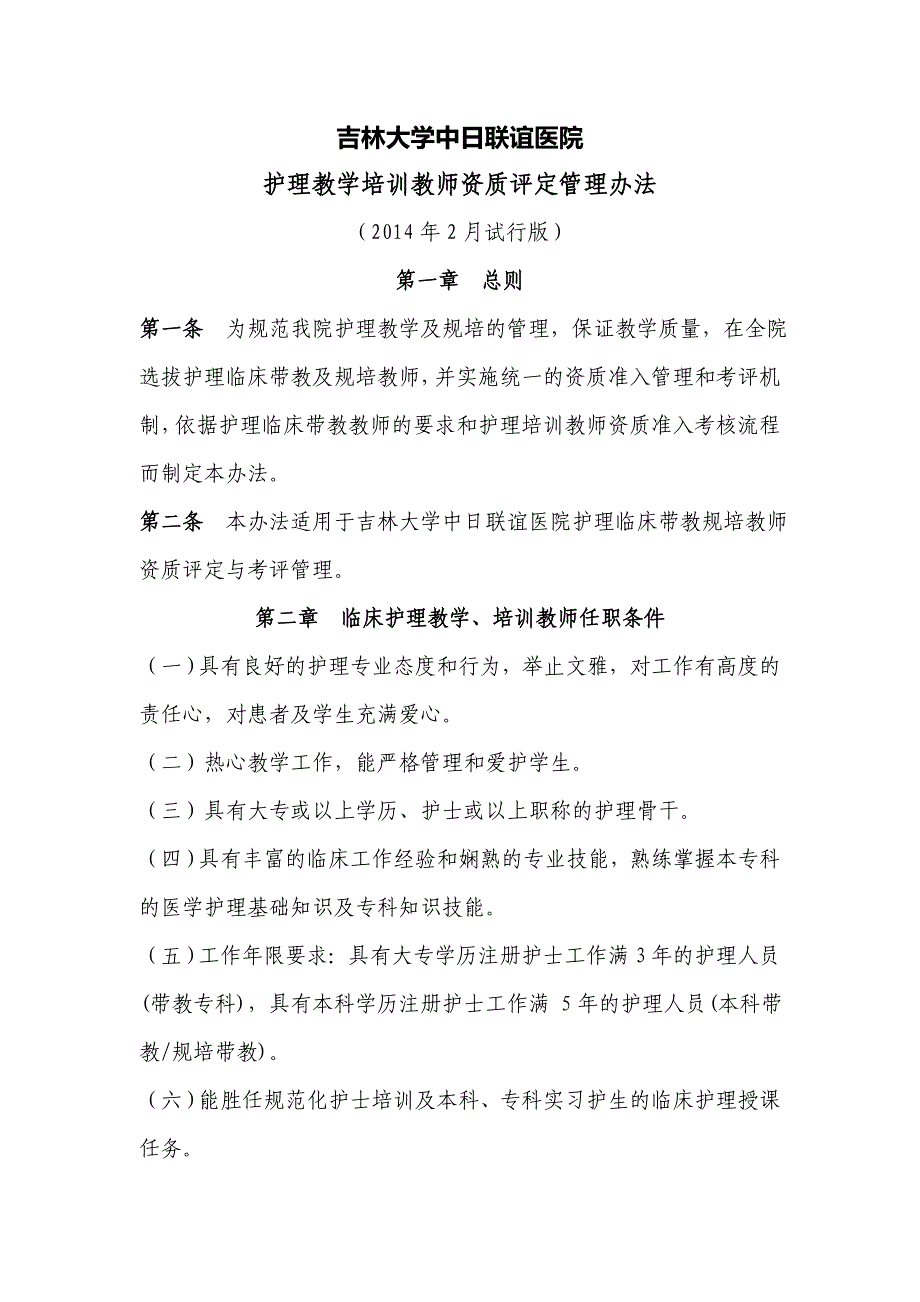 吉林大学中日联谊医院
护理教学培训教师资质评定管理办法
（2014年2月试行版）
第一章　总则
第一条　为规范我院护理教学及规培的管理，保证教学质量，在全院
选拔护理临床带教及规培教师，并实施统一的资质准入管理和考评机
制，依据护理临床带教教师的要求和护理培训教师资质准入考核流程
而制定本办法。
第二条　本办法适用于吉林大学中日联谊医院护理临床带教规培教师
资质评定与考评管理。
第二章　临床护理教学、培训教师任职条件
（一）具有良好的护理专业态度和行为，举止文雅，对工作有高度的
责任心，对患者及学生充满爱心。
（二）热心教学工作，能严格管理和爱护学生。
（三）具有大专或以上学历、护士或以上职称的护理骨干。
（四）具有丰富的临床工作经验和娴熟的专业技能，熟练掌握本专科
的医学护理基础知识及专科知识技能。
（五）工作年限要求：具有大专学历注册护士工作满3年的护理人员
(带教专科)，具有本科学历注册护士工作满 5年的护理人员(本科带
教/规培带教)。
（六）能胜任规范化护士培训及本科、专科实习护生的临床护理授课
任务。